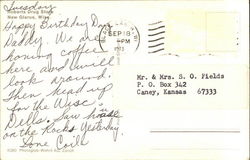 Tuesday
Roberts Drug Store
New Glarus, Wisc.
Happy Birthday Dear
Daddy. We are
having coffee
here and will
look around.
Then head up
for the Wisc.
Dells. Saw house
on the Rocks Yesterday.
Love
SEP 18
PM
Mr. & Mrs. S. O. Fields
P. O. Box 342
Caney, Kansas 67333